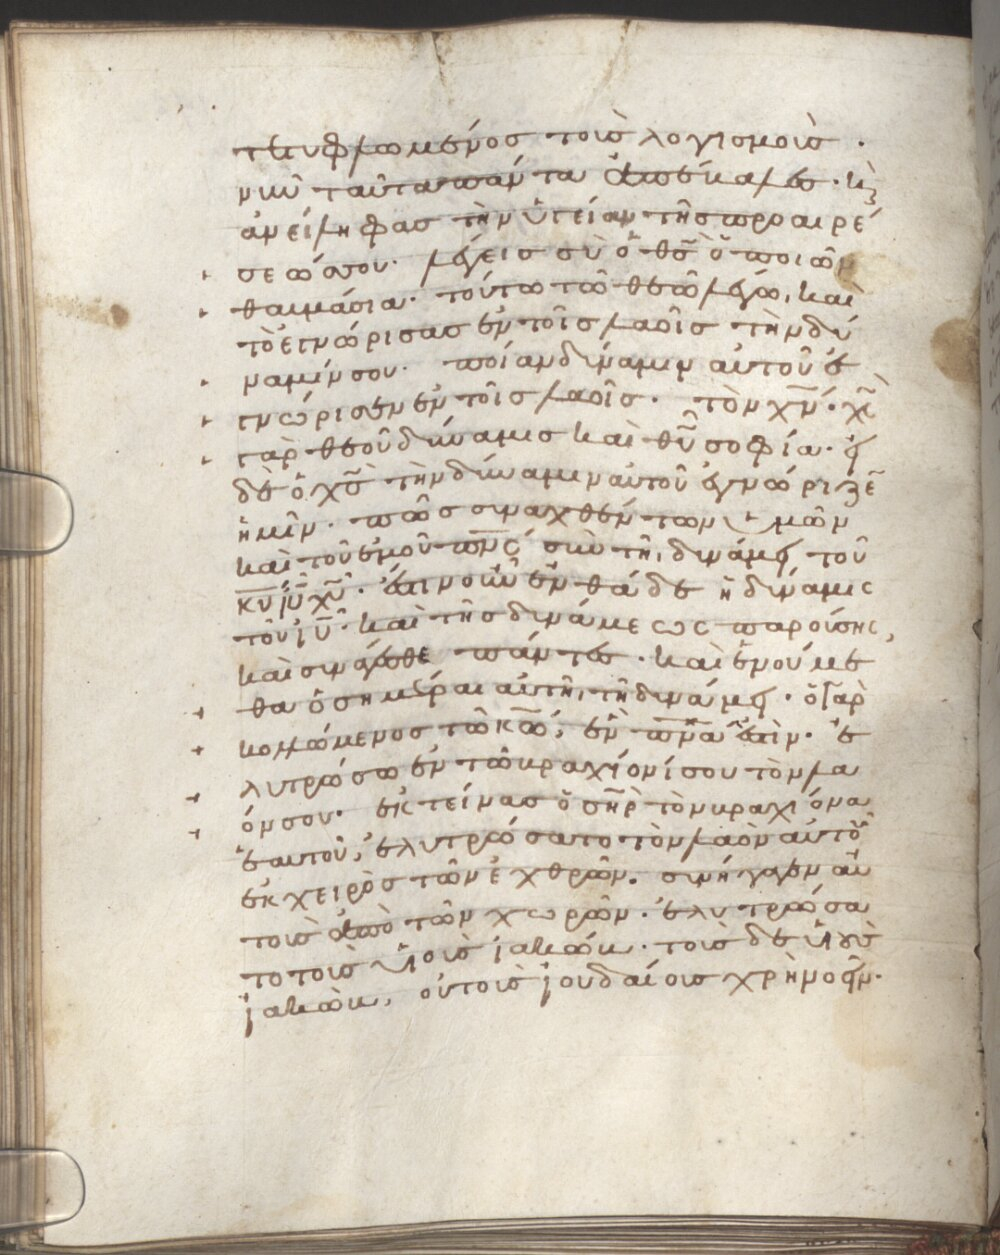 τετυφλωμένος τοῖς λογισμοῖς .
νῦν ταῦτα πάντα ἀπέβαλες . κ(αὶ)
ἀνείληφας τὴν ὑγείαν τῆς προαιρέ
σεώς σου · λέγεις σὺ ὁ θς ὁ ποιῶν
θαυμάσια · τούτω τῶ θεῶ λέγω, καὶ
τὸ ἐγνώρισας ἐν τοῖς λαοῖς τὴν δύ
ναμίν σου · ποίαν δύναμιν αὐτοῦ ἐ
γνώρισεν ἐν τοῖς λαοῖς · τὸν χν · χς
γὰρ θεοῦ δύναμις καὶ θυ σοφία · εἰ
δὲ ὁ χς τὴν δύναμιν αὐτοῦ ἐγνώριζε
ἡμῖν · πῶς συναχθέντων ὑμῶν
καὶ τοῦ ἐμοῦ πνς σὺν τῆ δυνάμει τοῦ
κυ ιυ χυ · ἐπινοῶ ἐνθάδε ἡ δύναμις
τοῦ ιυ · καὶ τῆς δυνάμεως παρούσης,
καὶ συνάγεσθε πάντες · καὶ ἑνούμε
θα ὁσημέραι αὐτῆ, τῆ δυνάμει · ὁ γὰρ
κολλώμενος τῶ κω, ἓν πνα ἐστὶν · ἐ
λυτρώσω ἐν τῶ βραχίονί σου τὸν λα
όν σου · ἐκτείνας ὁ σηρ τὸν βραχίονα
ἑαυτοῦ, ἐλυτρώσατο τὸν λαὸν αὐτοῦ
ἐκ χειρὸς τῶν ἐχθρῶν . συνήγαγεν αὐ
τοὺς ἀπὸ τῶν χωρῶν · ἐλυτρώσα
το τοὺς υἱοὺς ἰακώβ · τοὺς δὲ υἱοὺς
ἰακὼβ, οὐ τοὺς ἰουδαίους χρὴ νοεῖν ·